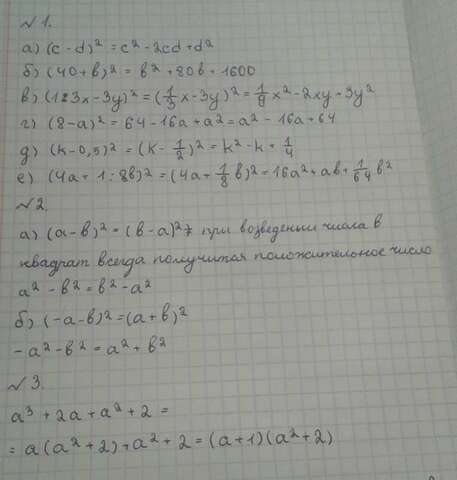 № 1.
а) (c - d)² = c² - 2cd + d²
б) (40 + b)² = b² + 80b + 1600
в) (1:3x - 3y)² = (1/3 x - 3y)² = 1/9 x² - 2xy + 9y²
г) (8 - a)² = 64 - 16a + a² = a² - 16a + 64
д) (k - 0,5)² = (k - 1/2)² = k² - k + 1/4
е) (4a + 1:8b)² = (4a + 1/8 b)² = 16a² + ab + 1/64 b²
№ 2.
а) (a - b)² = (b - a)² при возведении числа в
квадрат всегда получится положительное число
a² - b² = b² - a²
б) (-a - b)² = (a + b)²
-a² - b² = a² + b²
№ 3.
a³ + 2a + a² + 2 =
= a(a² + 2) + a² + 2 = (a + 1)(a² + 2)